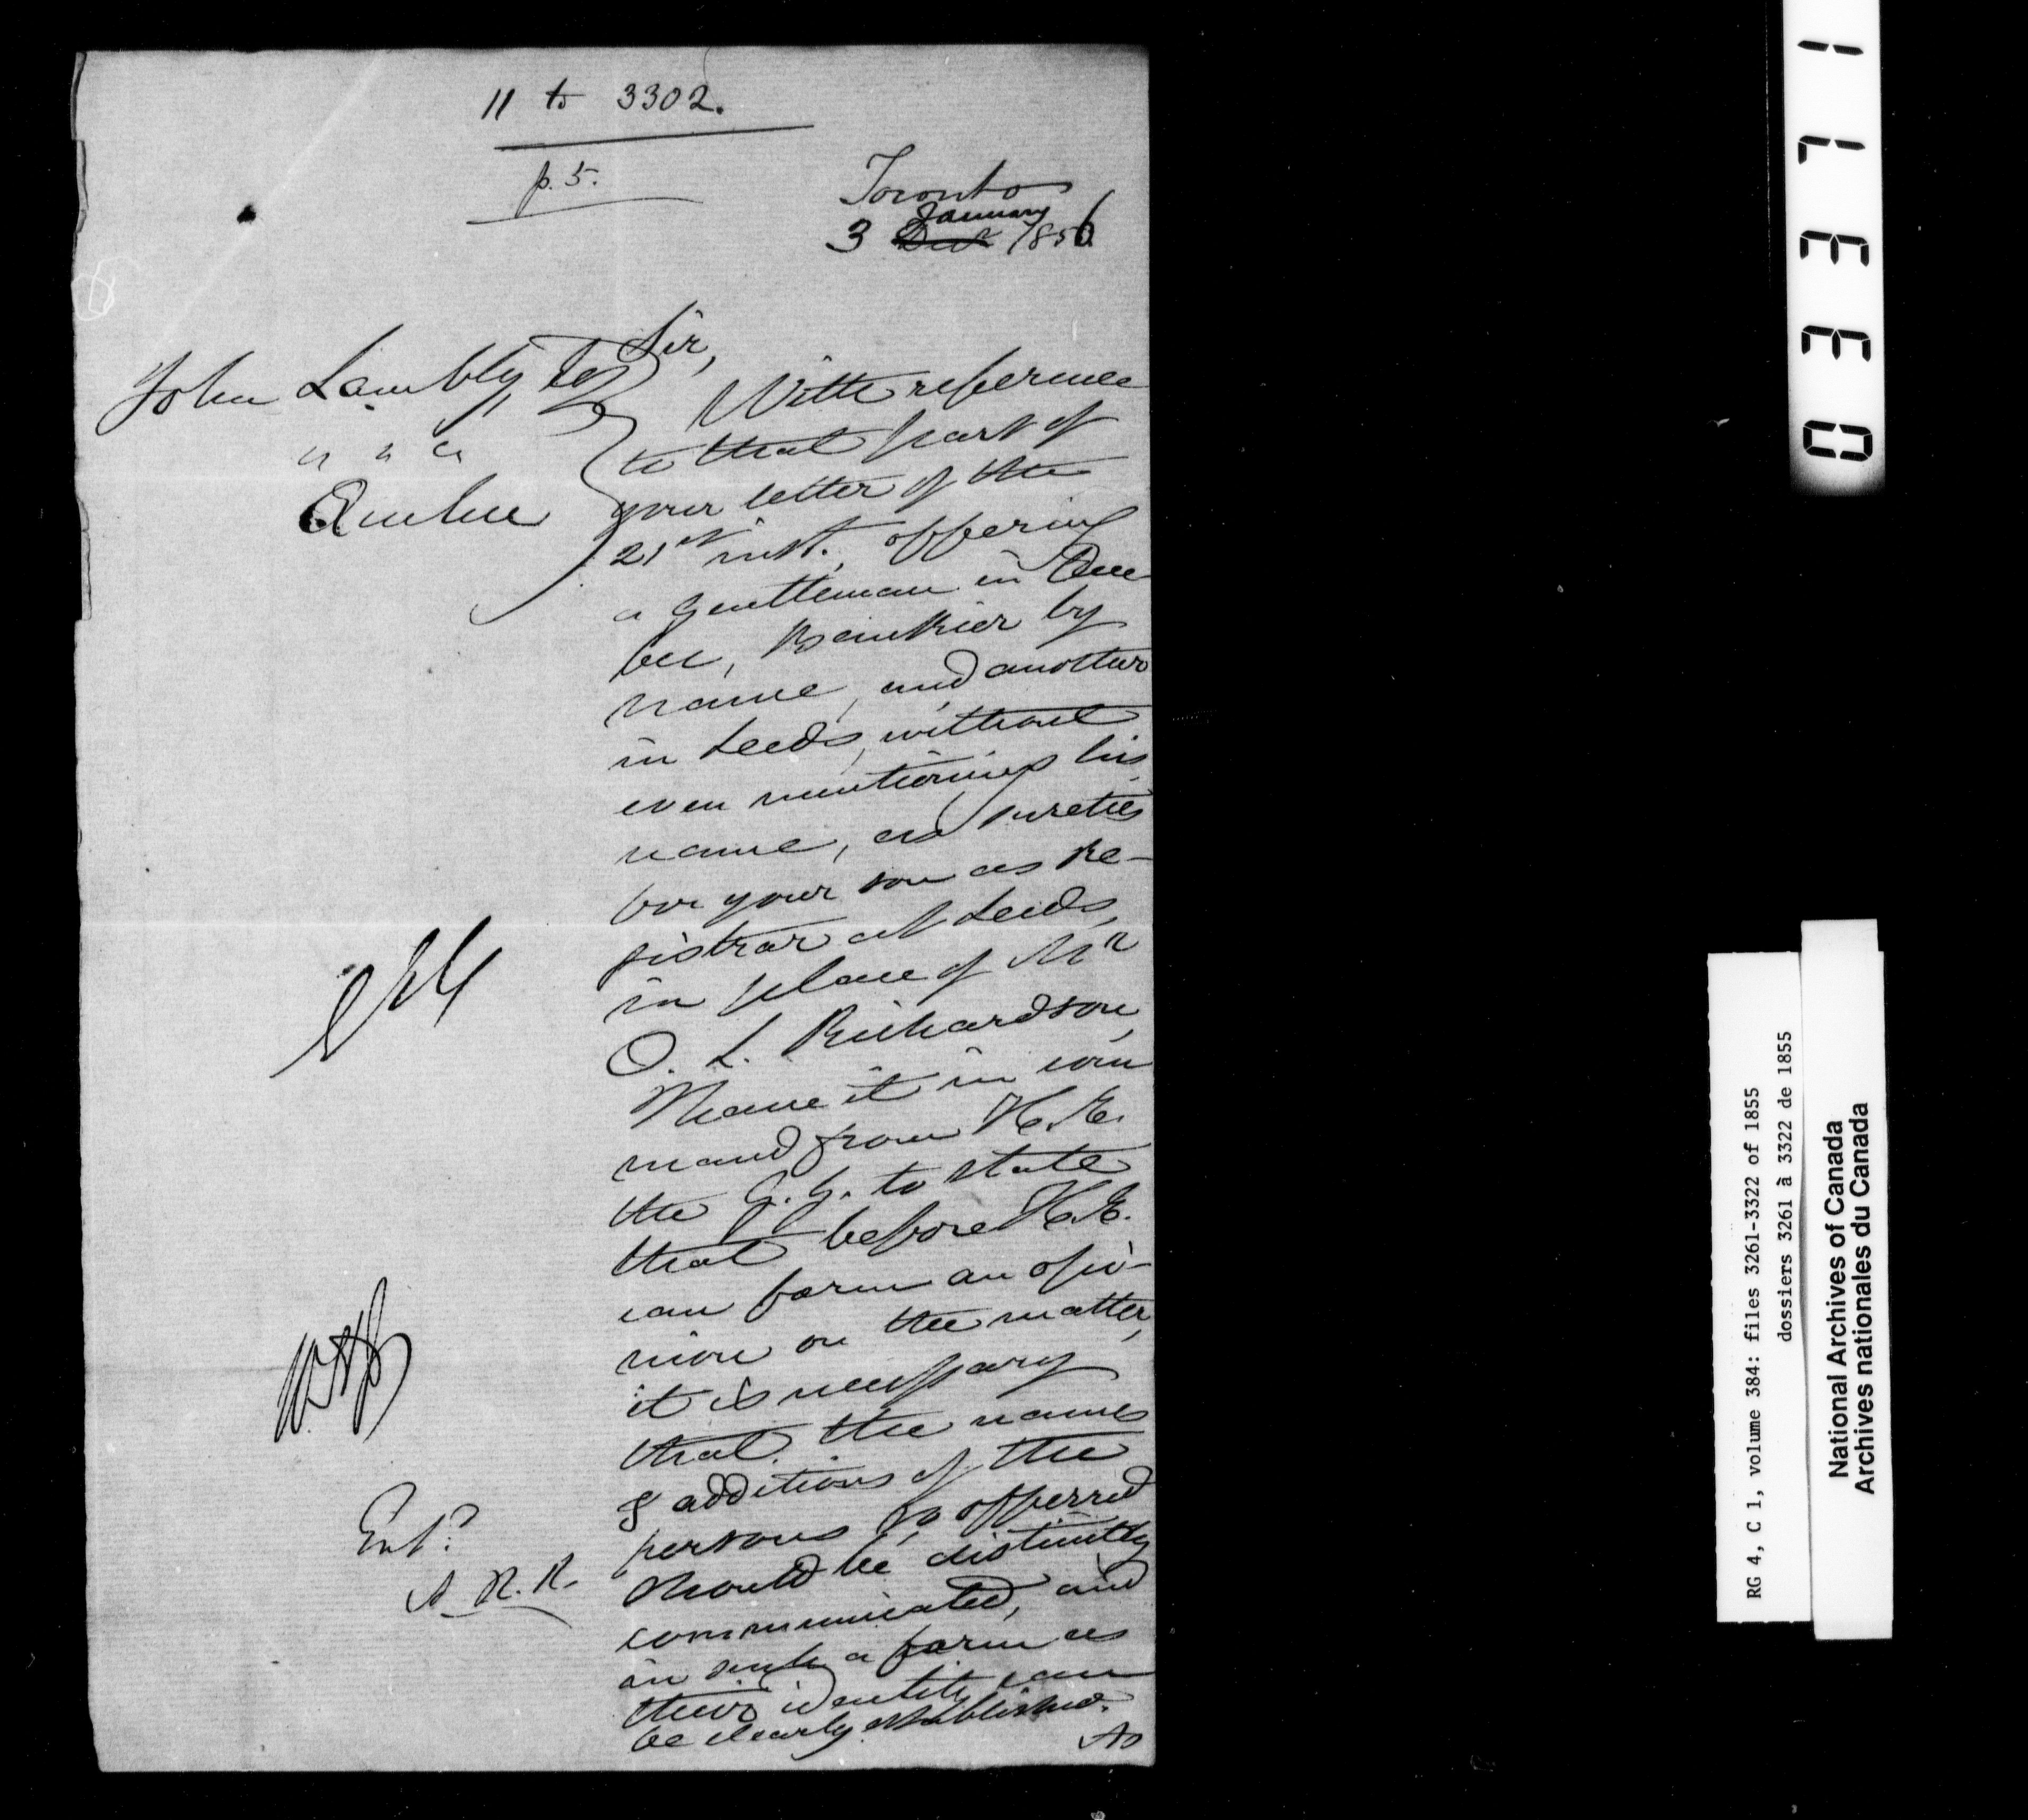 11 to 3302.
p. 5.
Toronto
January
3 Decr 1856
Sir,
John Lambly, Esq
" " "
Quebec
With reference
to that part of
your letter of the
21st inst. offering
a gentleman in Que
bec, by
name, and another
in Leeds, without
even mentioning his
name, as sureties
for your son as Re-
gistrar at Leeds,
in place of Mr
O. L. Richardson,
I have it in com
mand from H. E.
the G. G. to state
that before H. E.
can form an opi-
nion on the matter,
it is necessary
that the names
& additions of the
persons so offerred
should be distinctly
communicated, and
in such a form as
their identity can
be clearly established.
As
Entd
A. R. R.
03371
RG 4, C 1, volume 384: files 3261-3322 of 1855
dossiers 3261 à 3322 de 1855
National Archives of Canada
Archives nationales du Canada